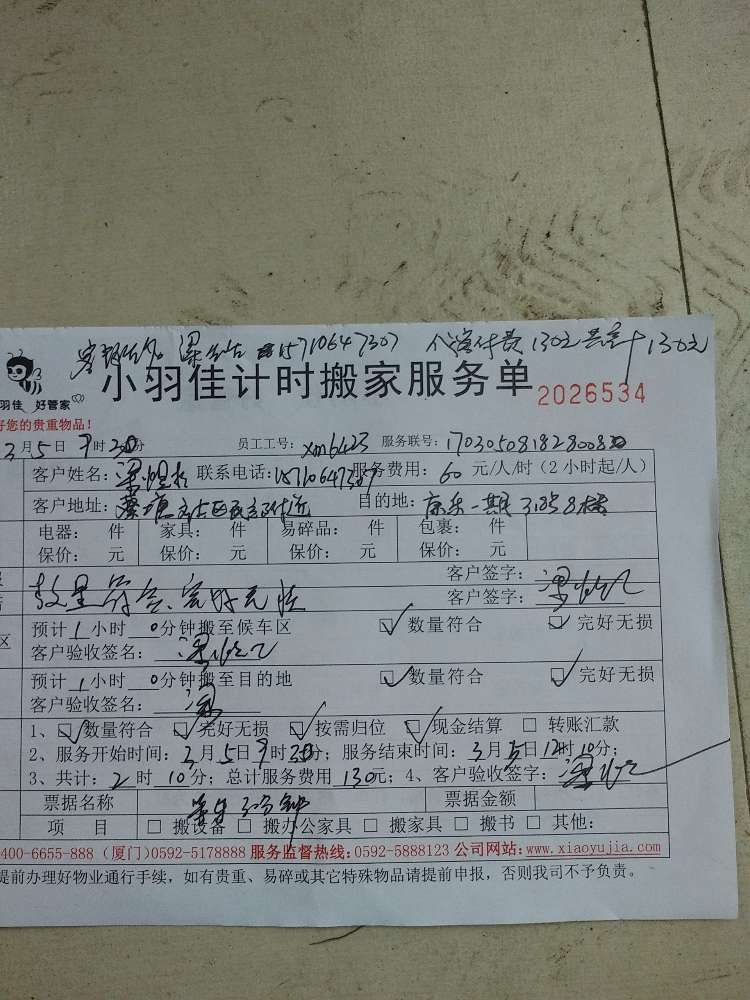 15710647307 130元 共计130元
羽佳 好管家 小羽佳计时搬家服务单 2026534
好您的贵重物品!
3月5日9时 分 员工工号: xm6423 服务联号:
客户姓名: 梁 联系电话:15710647307 服务费用: 60 元/人/时(2小时起/人)
客户地址: 附近 目的地: 一期
电器: 件 家具: 件 易碎品: 件 包裹: 件
保价: 元 保价: 元 保价: 元 保价: 元
客户签字: 梁
数量符合、完好无损 客户签字:
预计1小时 0分钟搬至候车区 数量符合 完好无损
客户验收签名: 梁
预计1小时 0分钟搬至目的地 数量符合 完好无损
客户验收签名: 梁
1、 数量符合 完好无损 按需归位 现金结算 转账汇款
2、服务开始时间: 3月5日9时 分; 服务结束时间: 3月5日12时10分;
3、共计: 2时10分; 总计服务费用 130元; 4、客户验收签字: 梁
票据名称 分钟 票据金额
项 目 搬设备 搬办公家具 搬家具 搬书 其他:
400-6655-888 (厦门)0592-5178888 服务监督热线:0592-5888123 公司网站:www.xiaoyujia.com
提前办理好物业通行手续,如有贵重、易碎或其它特殊物品请提前申报,否则我司不予负责。